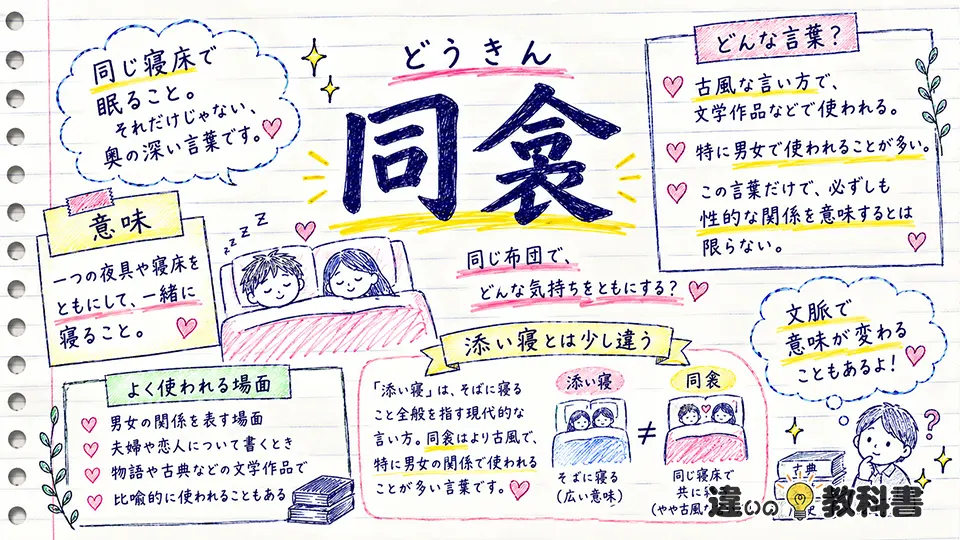 同じ寝床で
眠ること。
それだけじゃない、
奥の深い言葉です。
どうきん
同衾
どんな言葉？
古風な言い方で、
文学作品などで使われる。
特に男女で使われることが多い。
この言葉だけで、必ずしも
性的な関係を意味するとは
限らない。
意味
一つの夜具や寝床を
ともにして、一緒に
寝ること。
z z z z z
同じ布団で、
どんな気持ちをともにする？
文脈で
意味が変わる
こともあるよ！
よく使われる場面
男女の関係を表す場面
夫婦や恋人について書くとき
物語や古典などの文学作品で
比喩的に使われることもある
添い寝とは少し違う
「添い寝」は、そばに寝る
こと全般を指す現代的な
言い方。同衾はより古風で、
特に男女の関係で使われる
ことが多い言葉です。
添い寝
≠
同衾
そばに寝る
（広い意味）
同じ寝床で
共に
（やや古風
?
古典
違いの教科書